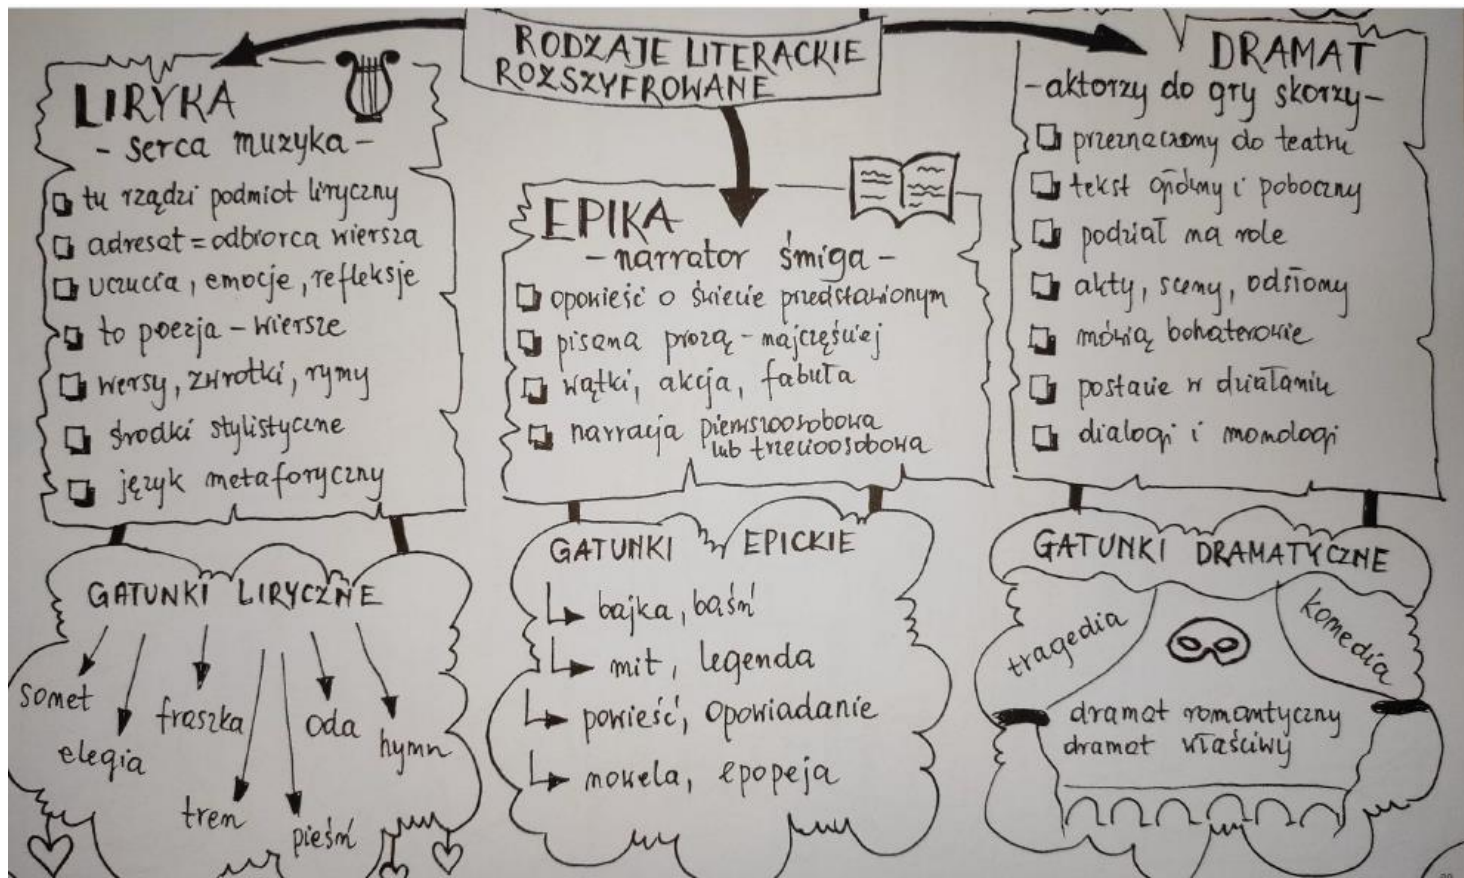 RODZAJE LITERACKIE
ROZSZYFROWANE
LIRYKA
- serca muzyka -
tu rządzi podmiot liryczny
adresat = odbiorca wiersza
uczucia, emocje, refleksje
to poezja - wiersze
wersy, zwrotki, rymy
środki stylistyczne
język metaforyczny
GATUNKI LIRYCZNE
sonet
elegia
fraszka
tren
pieśń
oda
hymn
EPIKA
- narrator śmiga -
opowieść o świecie przedstawionym
pisana prozą - najczęściej
wątki, akcja, fabuła
narracja pierwszoosobowa
lub trzecioosobowa
GATUNKI EPICKIE
bajka, baśń
mit, legenda
powieść, opowiadanie
nowela, epopeja
DRAMAT
- aktorzy do gry skorzy -
przeznaczony do teatru
tekst główny i poboczny
podział na role
akty, sceny, odsłony
mówią bohaterowie
postacie w działaniu
dialogi i monologi
GATUNKI DRAMATYCZNE
tragedia
komedia
dramat romantyczny
dramat właściwy